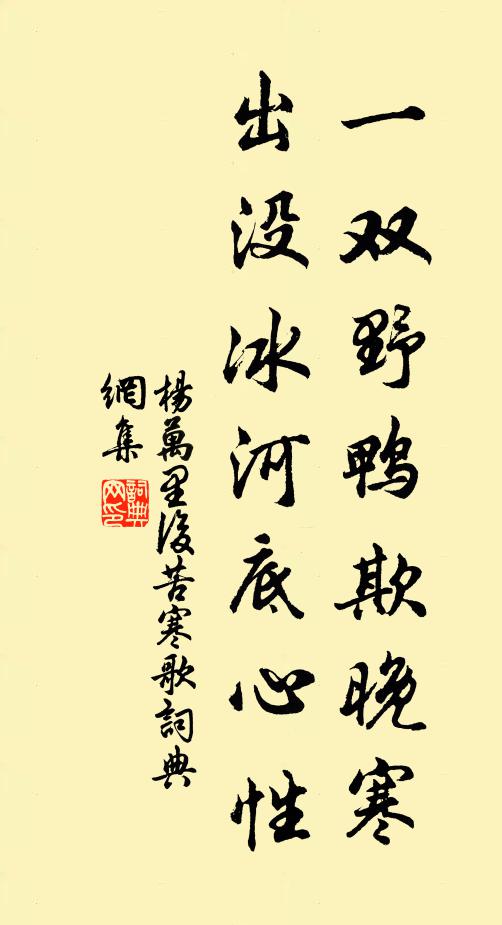 一双野鸭欺晚寒
出没冰河底心性
楊萬里後苦寒歌詞典
網集
詞典
网印